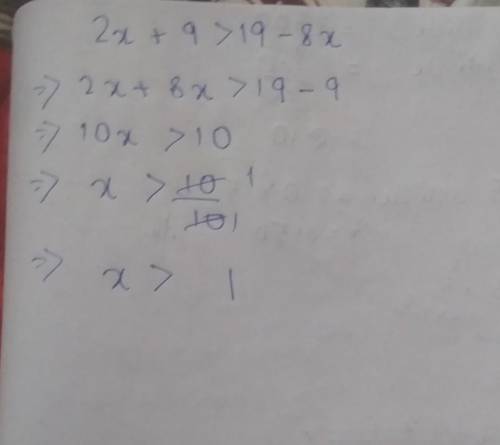 2x + 9 > 19 - 8x
⇒ 2x + 8x > 19 - 9
⇒ 10x > 10
⇒ x > 10/10 1 1
⇒ x > 1